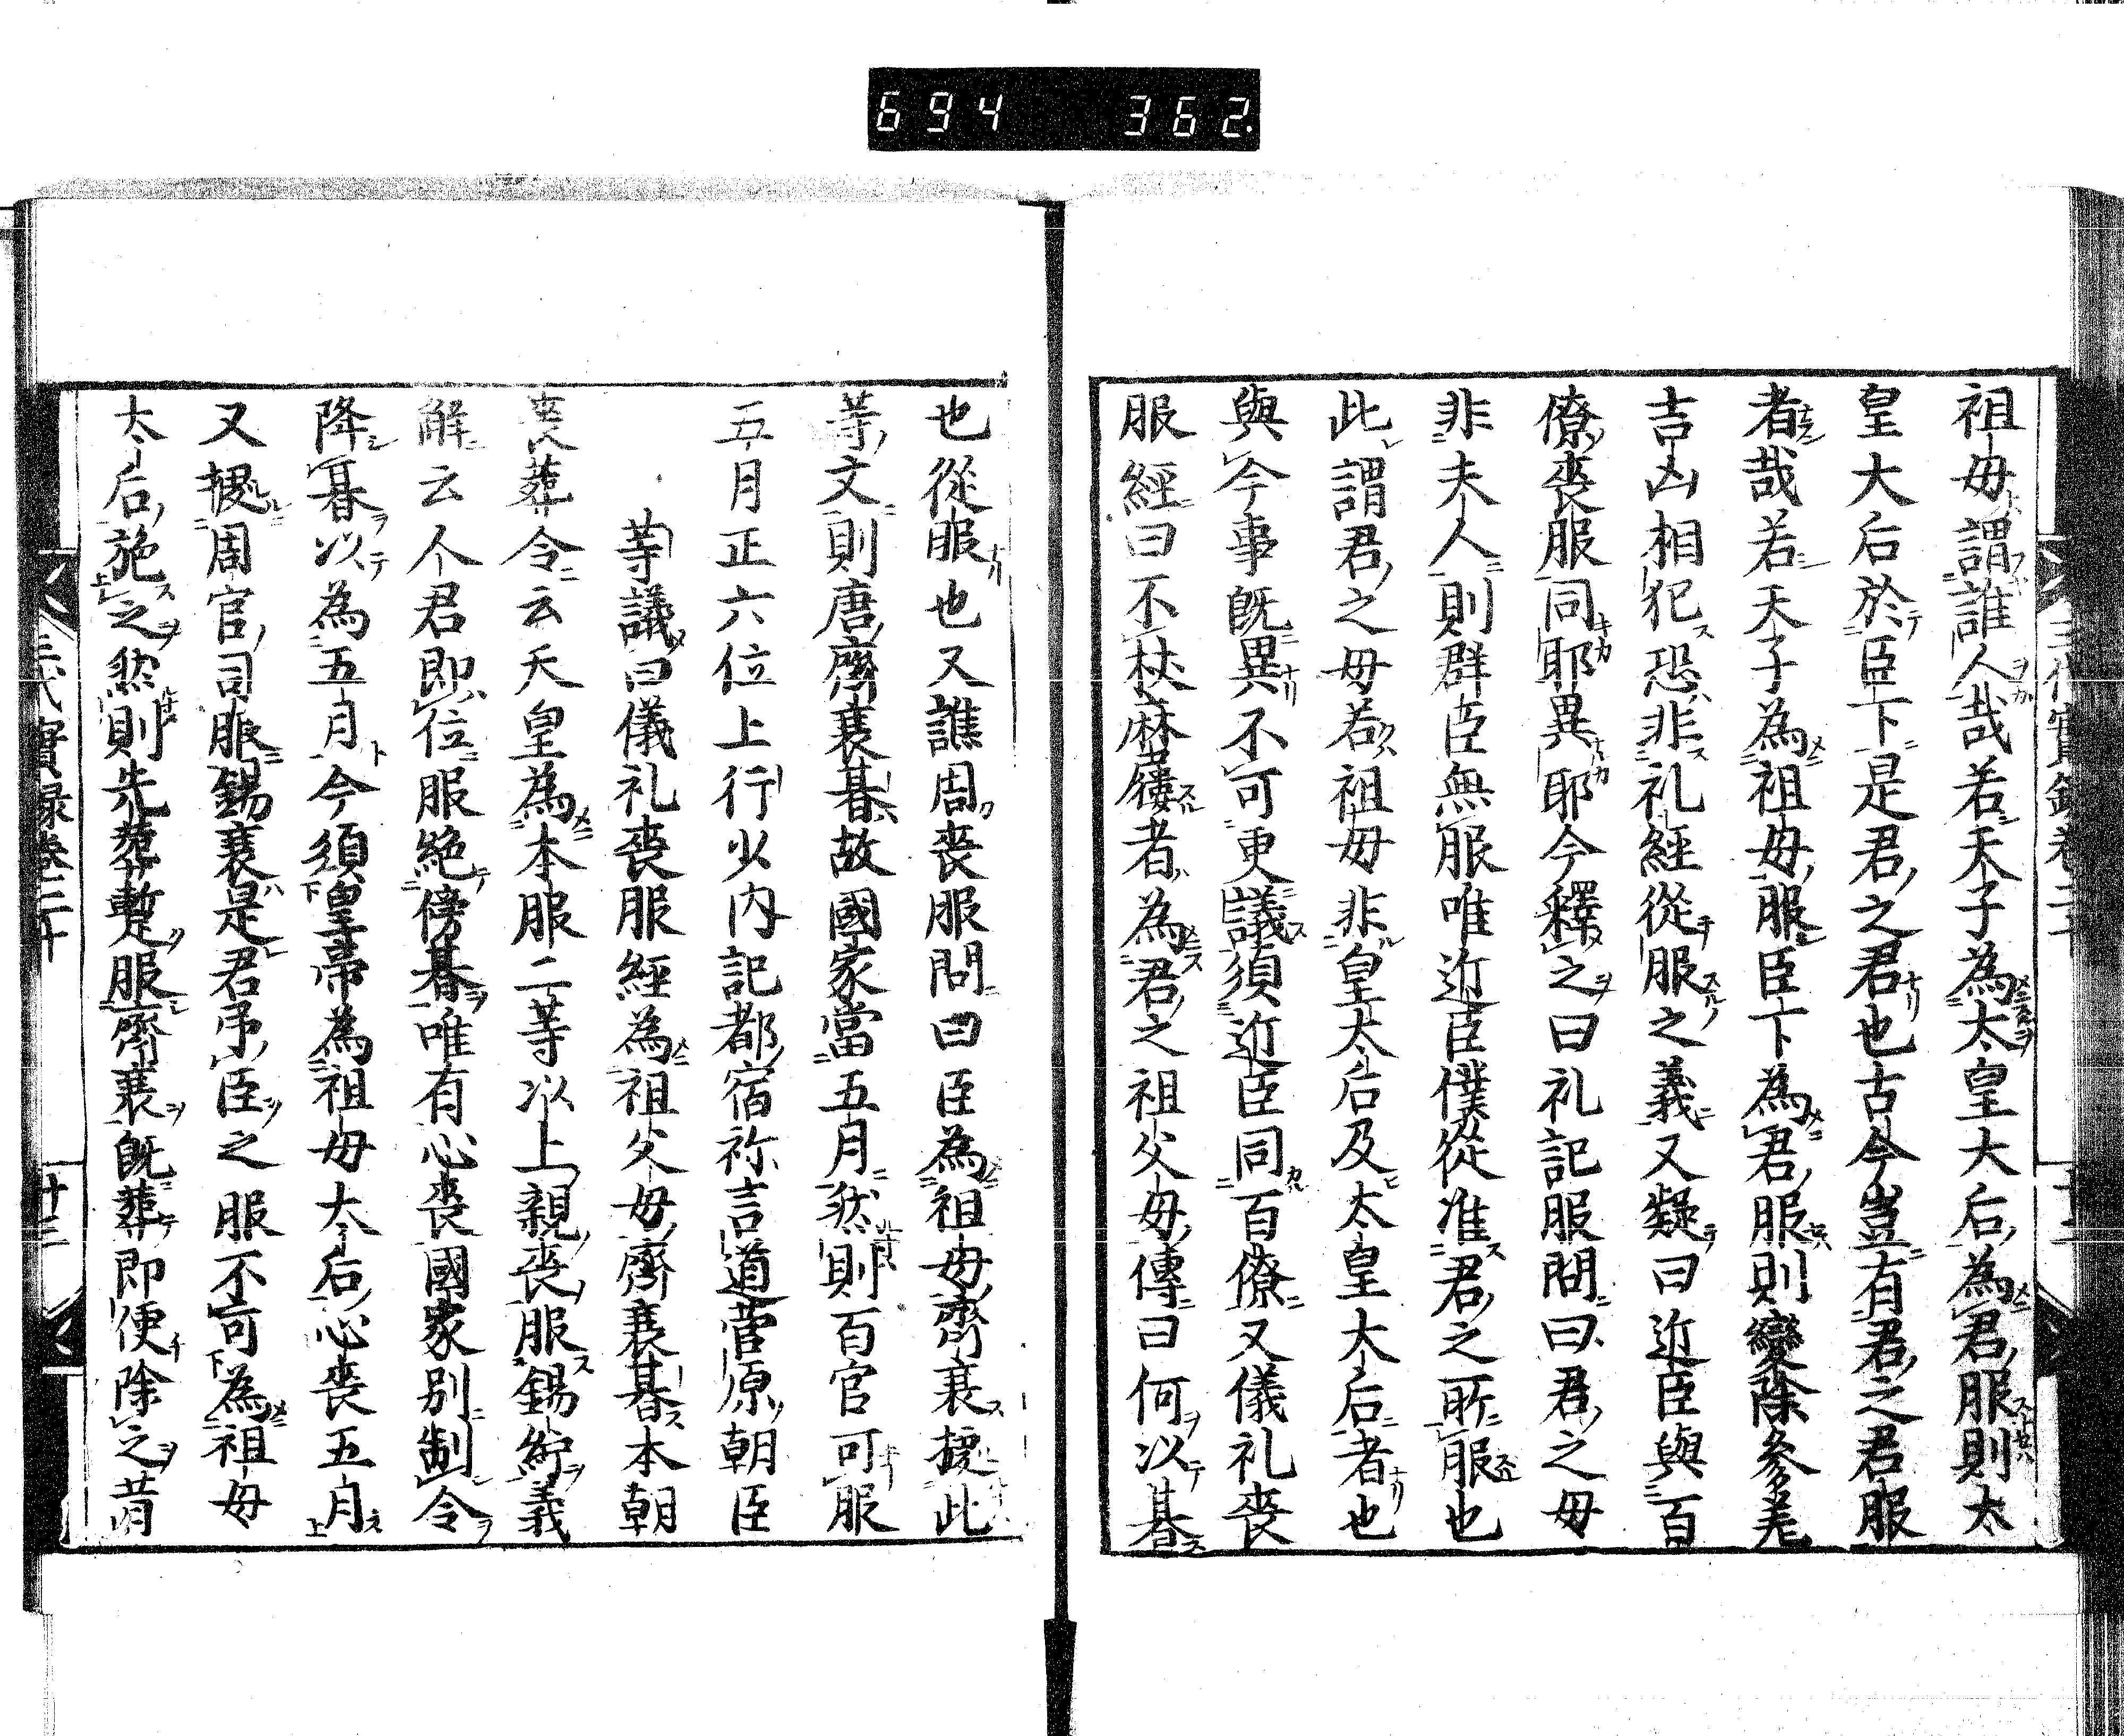 694 362
祖母謂誰人哉若天子為太皇大后為君服則太
皇大后於臣下是君之君也古今豈有君之君服
者哉若天子為祖母服臣下為君服則變除參差
吉凶相犯恐非礼經從服之義又疑曰近臣與百
僚喪服同耶異耶今釋之曰礼記服問曰君之母
非夫人則群臣無服唯近臣僕從准君之所服也
此謂君之母若祖母非皇太后及太皇大后者也
與今事既異不可更議須近臣同百僚又儀礼喪
服經曰不杖麻屨者為君之祖父母傳曰何以朞
也從服也又譙周喪服問曰臣為祖母齊衰據此
等文則唐齊衰朞故國家當五月然則百官可服
五月正六位上行少内記都宿祢言道菅原朝臣
等議曰儀礼喪服經為祖父母齊衰朞本朝
喪葬令云天皇為本服二等以上親喪服錫紵義
解云人君即位服絶傍朞唯有心喪國家別制令
降朞以為五月今須皇帝為祖母太后心喪五月
又據周官司服錫衰是君吊臣之服不可為祖母
太后施之然則先葬暫服齊衰既葬即便除之昔
三代實錄卷二十
十三